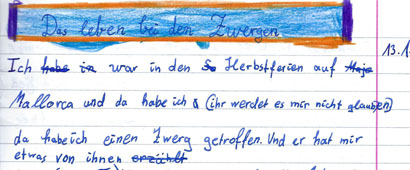 Das leben bei den Zwergen
13.1
Ich habe in war in den So Herbstferien auf Maja
Mallorca und da habe ich & (ihr werdet es mir nicht glauben)
da habe ich einen Zwerg getroffen. Und er hat mir
etwas von ihnen erzählt